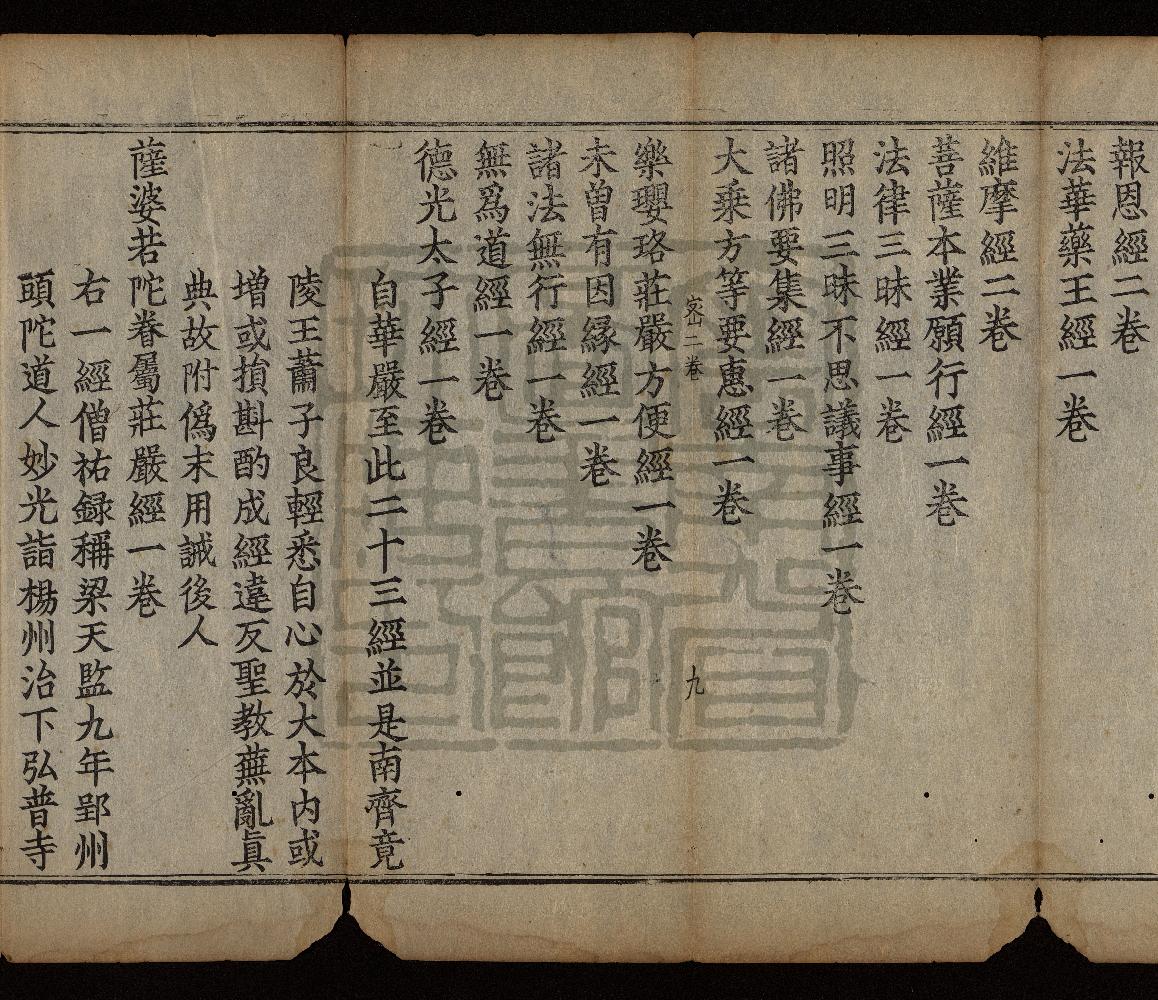 報恩經二卷
法華藥王經一卷
維摩經二卷
菩薩本業願行經一卷
法律三昧經一卷
照明三昧不思議事經一卷
諸佛要集經一卷
大乗方等要惠經一卷
二卷 九
樂瓔珞莊嚴方便經一卷
未曾有因縁經一卷
諸法無行經一卷
無爲道經一卷
德光太子經一卷
自華嚴至此二十三經並是南齊竟
陵王蕭子良輕悉自心於大本内或
增或損斟酌成經違反聖教蕪亂真
典故附僞末用誡後人
薩婆若陀眷屬莊嚴經一卷
右一經僧祐録稱梁天監九年郢州
頭陀道人妙光詣楊州治下弘普寺